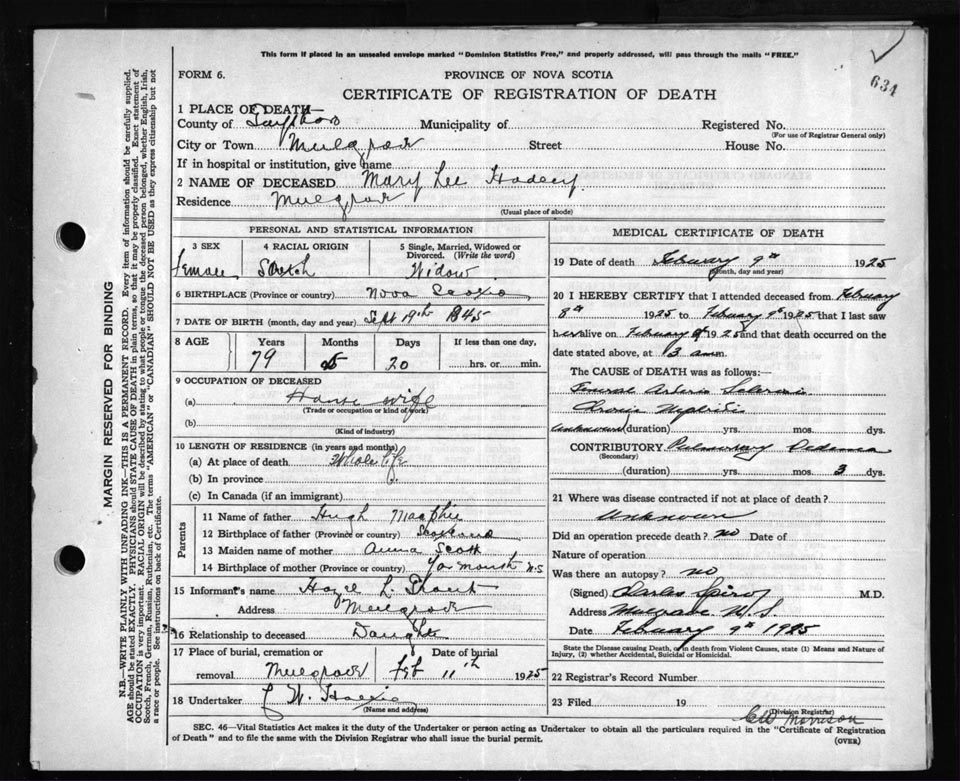 This form if placed in an unsealed envelope marked "Dominion Statistics Free," and properly addressed, will pass through the mails "FREE."
634
FORM 6.
PROVINCE OF NOVA SCOTIA
CERTIFICATE OF REGISTRATION OF DEATH
1 PLACE OF DEATH—
County of Municipality of Registered No.
(For use of Registrar General only)
City or Town Mulgrave Street House No.
If in hospital or institution, give name
2 NAME OF DECEASED Mary Lee Hadley
Residence Mulgrave
(Usual place of abode)
PERSONAL AND STATISTICAL INFORMATION
3 SEX 4 RACIAL ORIGIN 5 Single, Married, Widowed or Divorced. (Write the word)
female Scotch Widow
6 BIRTHPLACE (Province or country) Nova Scotia
7 DATE OF BIRTH (month, day and year) Sept 19th 1845
8 AGE Years Months Days If less than one day,
79 5 20 hrs. or min.
9 OCCUPATION OF DECEASED
(a) House wife
(Trade or occupation or kind of work)
(b)
(Kind of industry)
10 LENGTH OF RESIDENCE (in years and months)
(a) At place of death Whole life
(b) In province
(c) In Canada (if an immigrant)
Parents
11 Name of father Hugh Macphie
12 Birthplace of father (Province or country) Scotland
13 Maiden name of mother Anna Scott
14 Birthplace of mother (Province or country) Yarmouth N.S
15 Informant's name L.
Address Mulgrave
16 Relationship to deceased Daughter
17 Place of burial, cremation or removal Date of burial
Mulgrave Feb 11th 1925
18 Undertaker W.
(Name and address)
MEDICAL CERTIFICATE OF DEATH
19 Date of death February 9th 1925
(month, day and year)
20 I HEREBY CERTIFY that I attended deceased from February
8th 1925 to February 9th 1925 that I last saw
her alive on February 9 1925 and that death occurred on the
date stated above, at 3 a m.
The CAUSE of DEATH was as follows:—
General Arterio
Chronic Nephritis
Unknown (duration) yrs. mos. dys.
CONTRIBUTORY Pulmonary Oedema
(Secondary)
(duration) yrs. mos. 3 dys.
21 Where was disease contracted if not at place of death?
Unknown
Did an operation precede death? no Date of
Nature of operation
Was there an autopsy? no
(Signed) Charles M.D.
Address Mulgrave N.S.
Date February 9th 1925
State the Disease causing Death, or in death from Violent Causes, state (1) Means and Nature of Injury, (2) whether Accidental, Suicidal or Homicidal.
22 Registrar's Record Number
23 Filed 19
Morrison
(Division Registrar)
SEC. 46—Vital Statistics Act makes it the duty of the Undertaker or person acting as Undertaker to obtain all the particulars required in the "Certificate of Registration of Death" and to file the same with the Division Registrar who shall issue the burial permit.
(OVER)
MARGIN RESERVED FOR BINDING
N.B.—WRITE PLAINLY WITH UNFADING INK—THIS IS A PERMANENT RECORD. Every item of information should be carefully supplied.
AGE should be stated EXACTLY. PHYSICIANS should STATE CAUSE OF DEATH in plain terms, so that it may be properly classified. Exact statement of
OCCUPATION is very important. RACIAL ORIGIN will be described by stating to what people or tongue the deceased person belonged, whether English, Irish,
Scotch, French, German, Russian, Ruthenian, etc. The terms "AMERICAN" or "CANADIAN" SHOULD NOT BE USED as they express citizenship but not
a race or people. See instructions on back of Certificate.